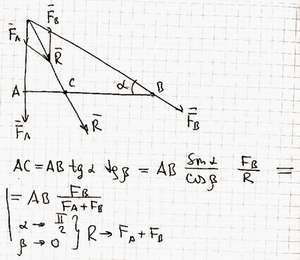 F_B
F_A
R
A
C
α
B
F_A
R
F_B
AC = AB tg α tg β = AB sin α / cos β F_B / R =
= AB F_B / F_A + F_B
α → π/2
β → 0 } R → F_A + F_B